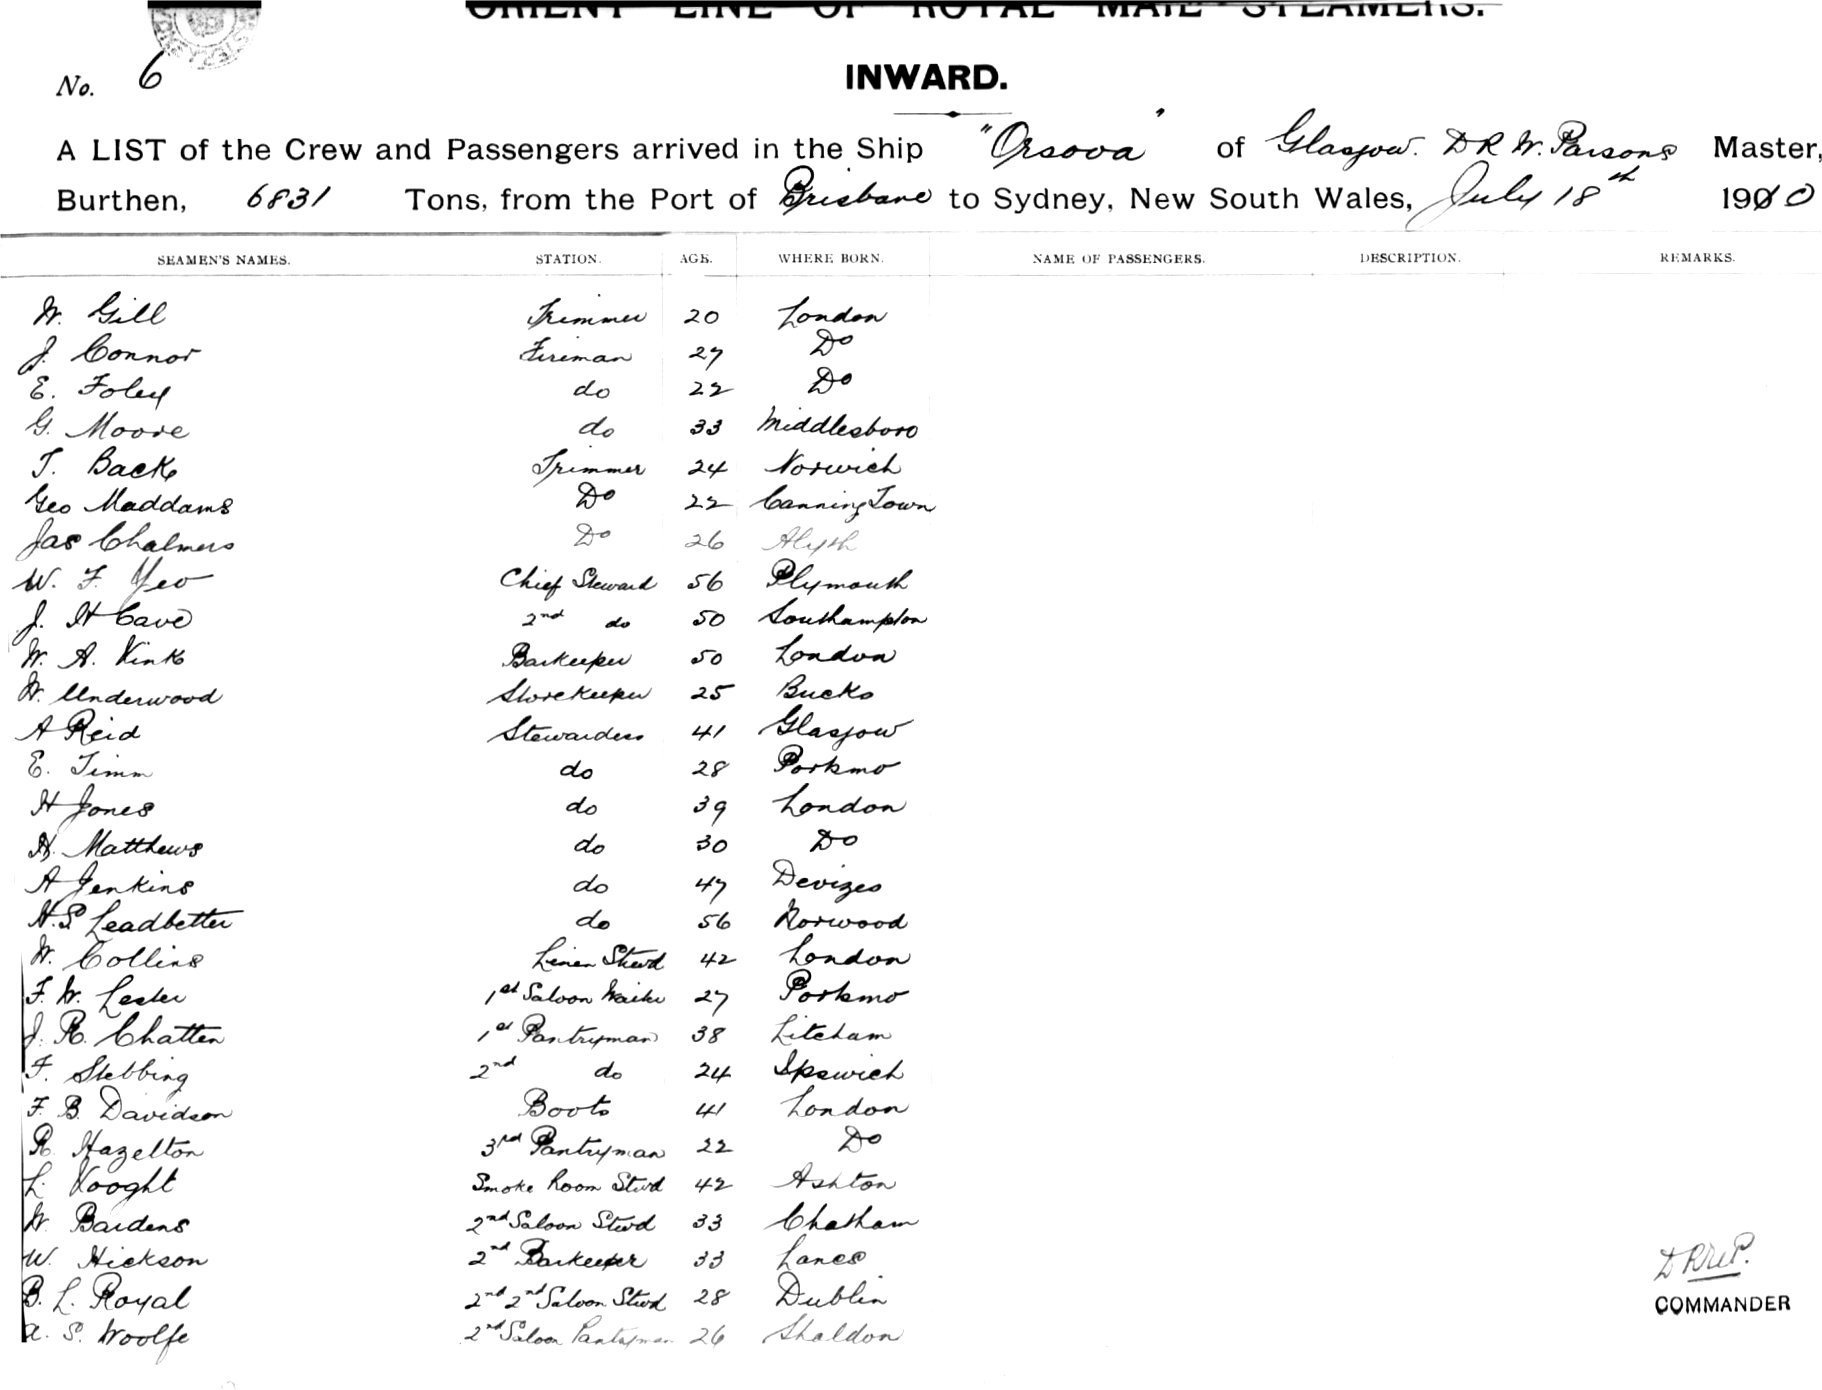 ORIENT LINE OF ROYAL MAIL STEAMERS.
No. 6
INWARD.
A LIST of the Crew and Passengers arrived in the Ship "Orsova" of Glasgow. D R W. Parsons Master,
Burthen, 6831 Tons, from the Port of Brisbane to Sydney, New South Wales, July 18th 1910
SEAMEN'S NAMES. STATION. AGE. WHERE BORN. NAME OF PASSENGERS. DESCRIPTION. REMARKS.
W. Gill Trimmer 20 London
J. Connor Fireman 27 Do
E. Foley do 22 Do
G. Moore do 33 Middlesboro
T. Back Trimmer 24 Norwich
Geo Maddams Do 22 Canning Town
Jas Chalmers Do 26 Alyth
W. F. Yeo Chief Steward 56 Plymouth
J. H Cave 2nd do 50 Southampton
W. A. Vink Barkeeper 50 London
W. Underwood Storekeeper 25 Bucks
A Reid Stewardess 41 Glasgow
E. Timm do 28 Portsmo
H Jones do 39 London
A. Matthews do 30 Do
A Jenkins do 47 Devizes
H. S. Leadbetter do 56 Norwood
W. Collins Linen Stewd 42 London
F. W. Lester 1st Saloon Waiter 27 Portsmo
J. R. Chatten 1st Pantryman 38 Litcham
F. Stebbing 2nd do 24 Ipswich
F. B. Davidson Boots 41 London
R. Hazelton 3rd Pantryman 22 Do
L. Vooght Smoke Room Stwd 42 Ashton
W. Bardens 2nd Saloon Stwd 33 Chatham
W. Hickson 2nd Barkeeper 33 Lancs
B. L. Royal 2nd 2nd Saloon Stwd 28 Dublin
A. S. Woolfe 2nd Saloon Pantryman 26 Shaldon
D R W P.
COMMANDER